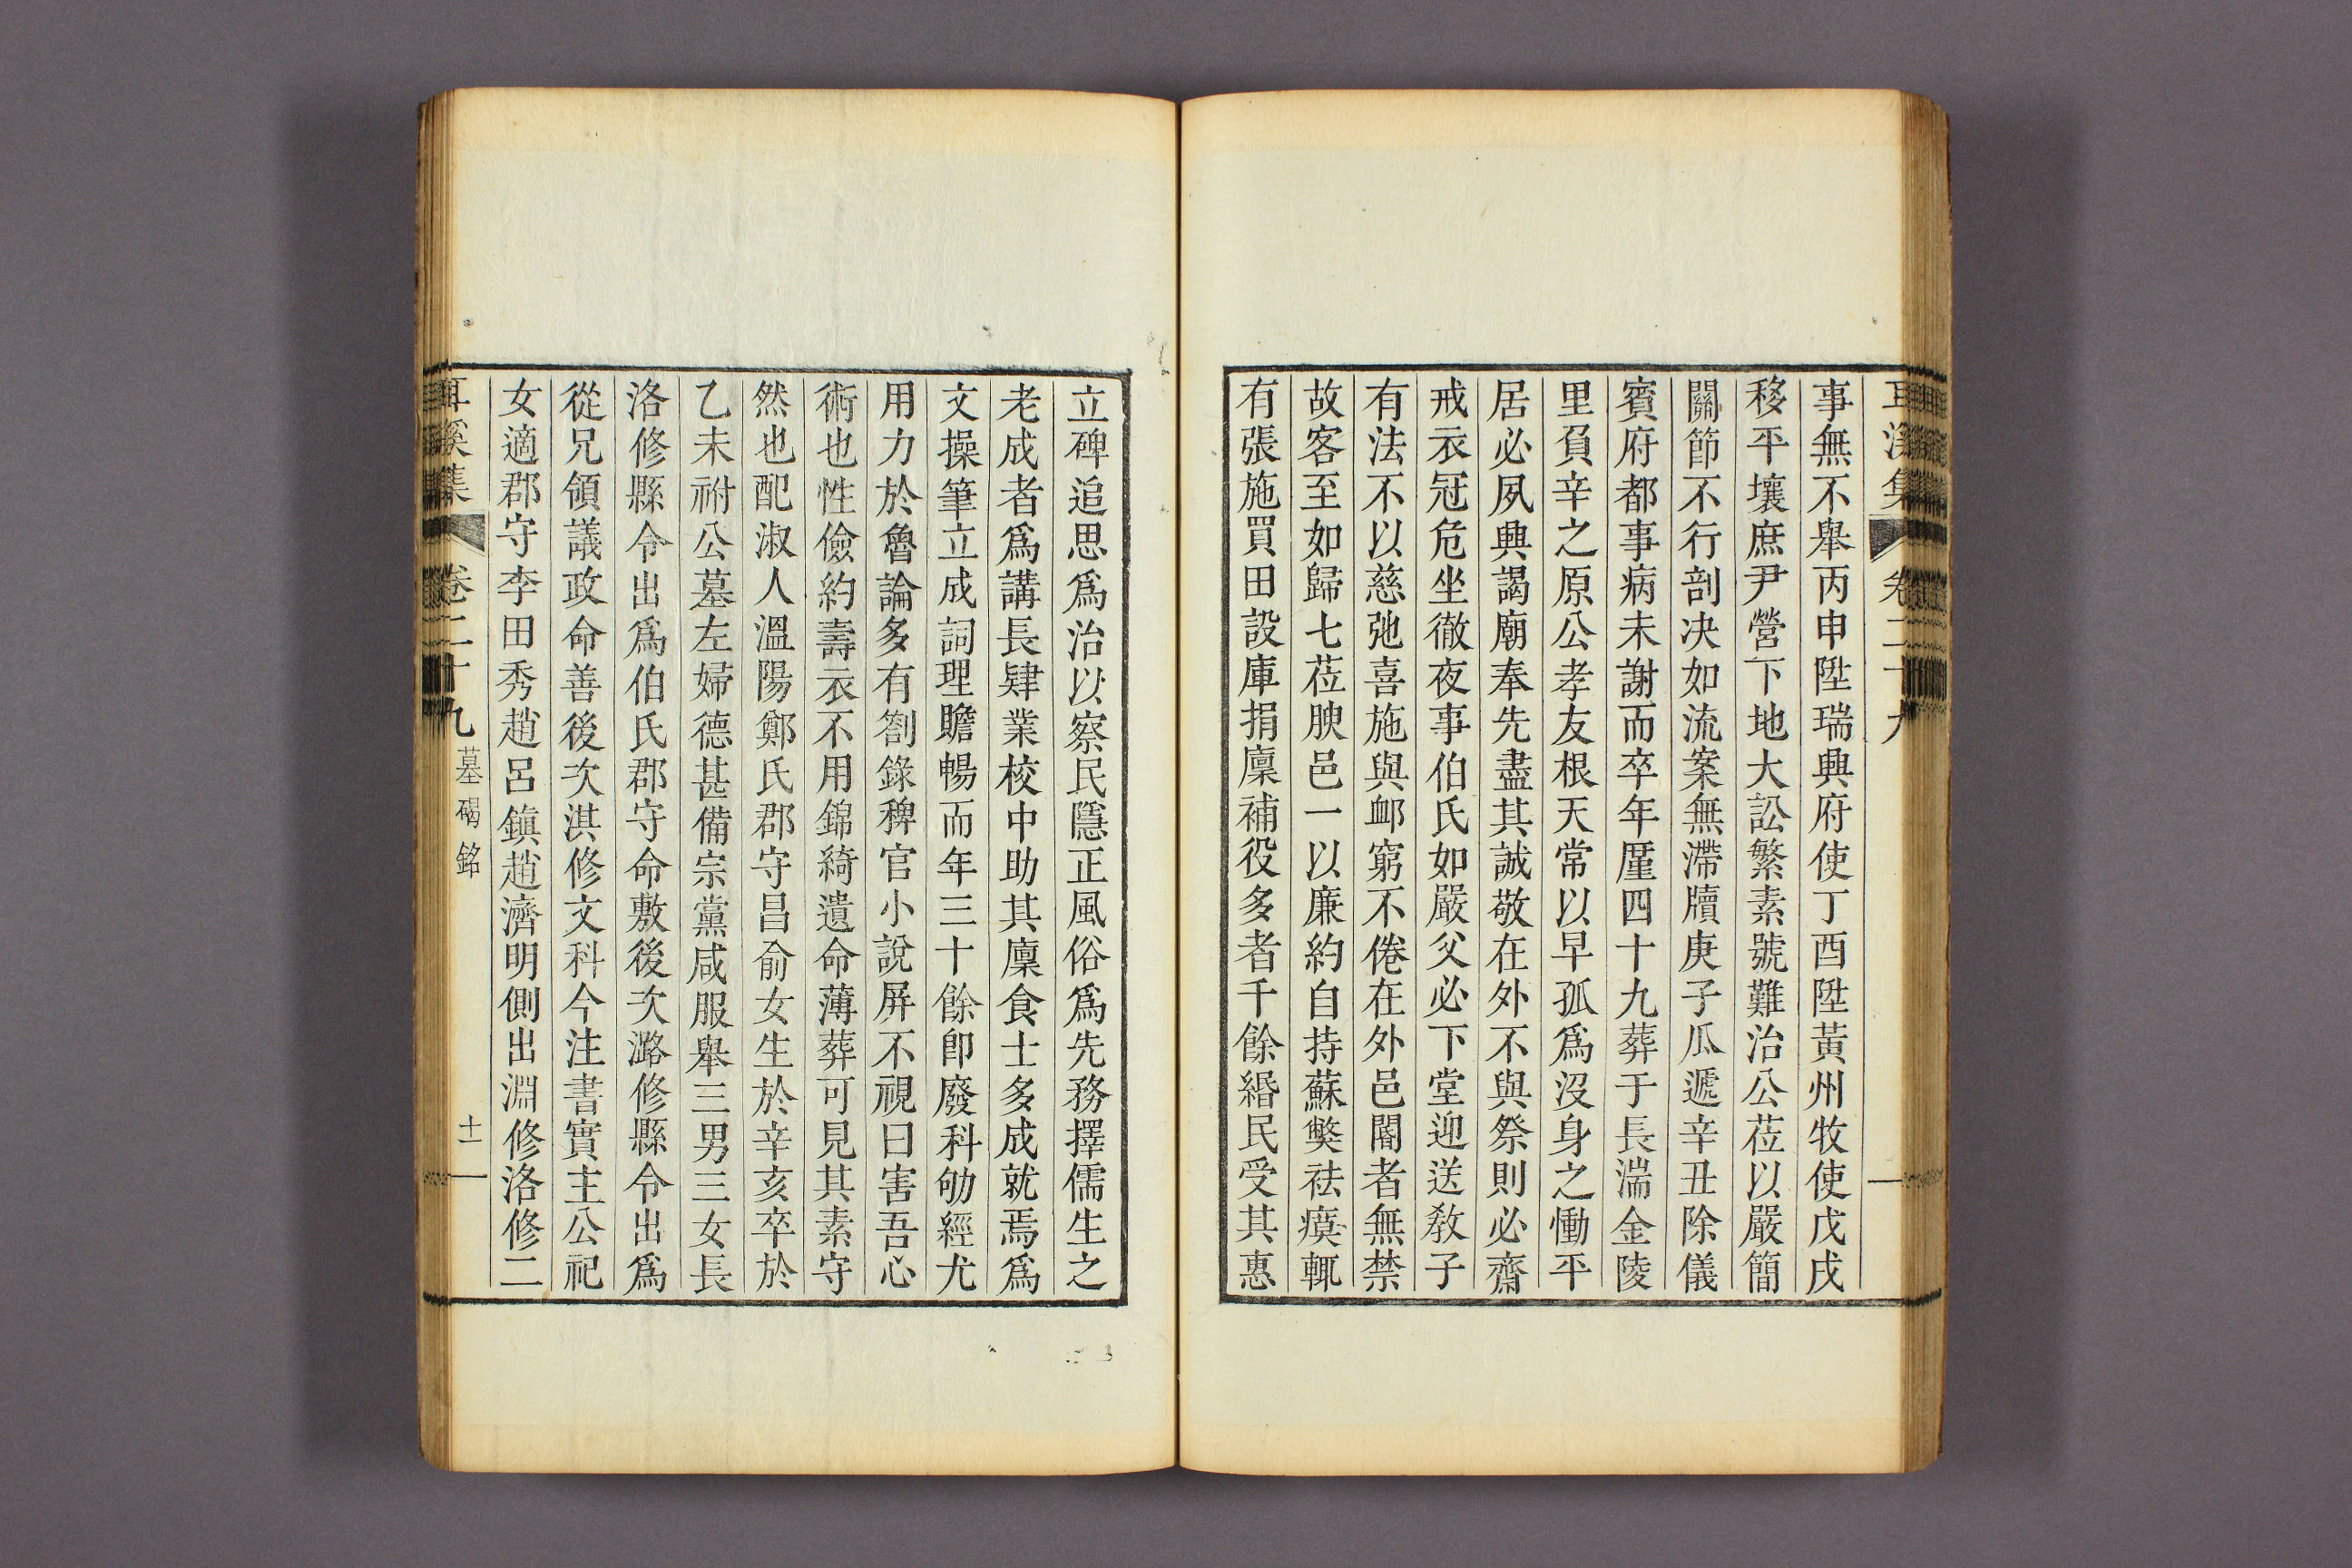 耳溪集 卷二十九
事無不舉丙申陞瑞興府使丁酉陞黃州牧使戊戌
移平壤庶尹營下地大訟繁素號難治公莅以嚴簡
關節不行剖決如流案無滯牘庚子瓜遞辛丑除儀
賓府都事病未謝而卒年厪四十九葬于長湍金陵
里負辛之原公孝友根天常以早孤爲沒身之慟平
居必夙興謁廟奉先盡其誠敬在外不與祭則必齋
戒衣冠危坐徹夜事伯氏如嚴父必下堂迎送敎子
有法不以慈弛喜施與卹窮不倦在外邑閽者無禁
故客至如歸七莅腴邑一以廉約自持蘇獘祛瘼輒
有張施買田設庫捐廩補役多者千餘緡民受其惠
立碑追思爲治以察民隱正風俗爲先務擇儒生之
老成者爲講長肄業校中助其廩食士多成就焉爲
文操筆立成詞理贍暢而年三十餘卽廢科劬經尤
用力於魯論多有劄錄稗官小說屛不視曰害吾心
術也性儉約壽衣不用錦綺遺命薄葬可見其素守
然也配淑人溫陽鄭氏郡守昌俞女生於辛亥卒於
乙未祔公墓左婦德甚備宗黨咸服舉三男三女長
洛修縣令出爲伯氏郡守命敷後次潞修縣令出爲
從兄領議政命善後次淇修文科今注書實主公祀
女適郡守李田秀趙呂鎭趙濟明側出淵修洛修二
耳溪集 卷二十九 墓碣銘 十一